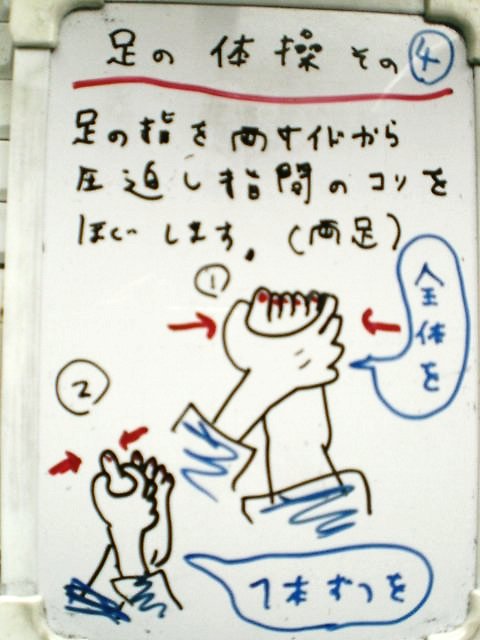 足の体操その④
足の指を両サイドから
圧迫し指間のコリを
ほぐします。(両足)
①
全体を
②
1本ずつを